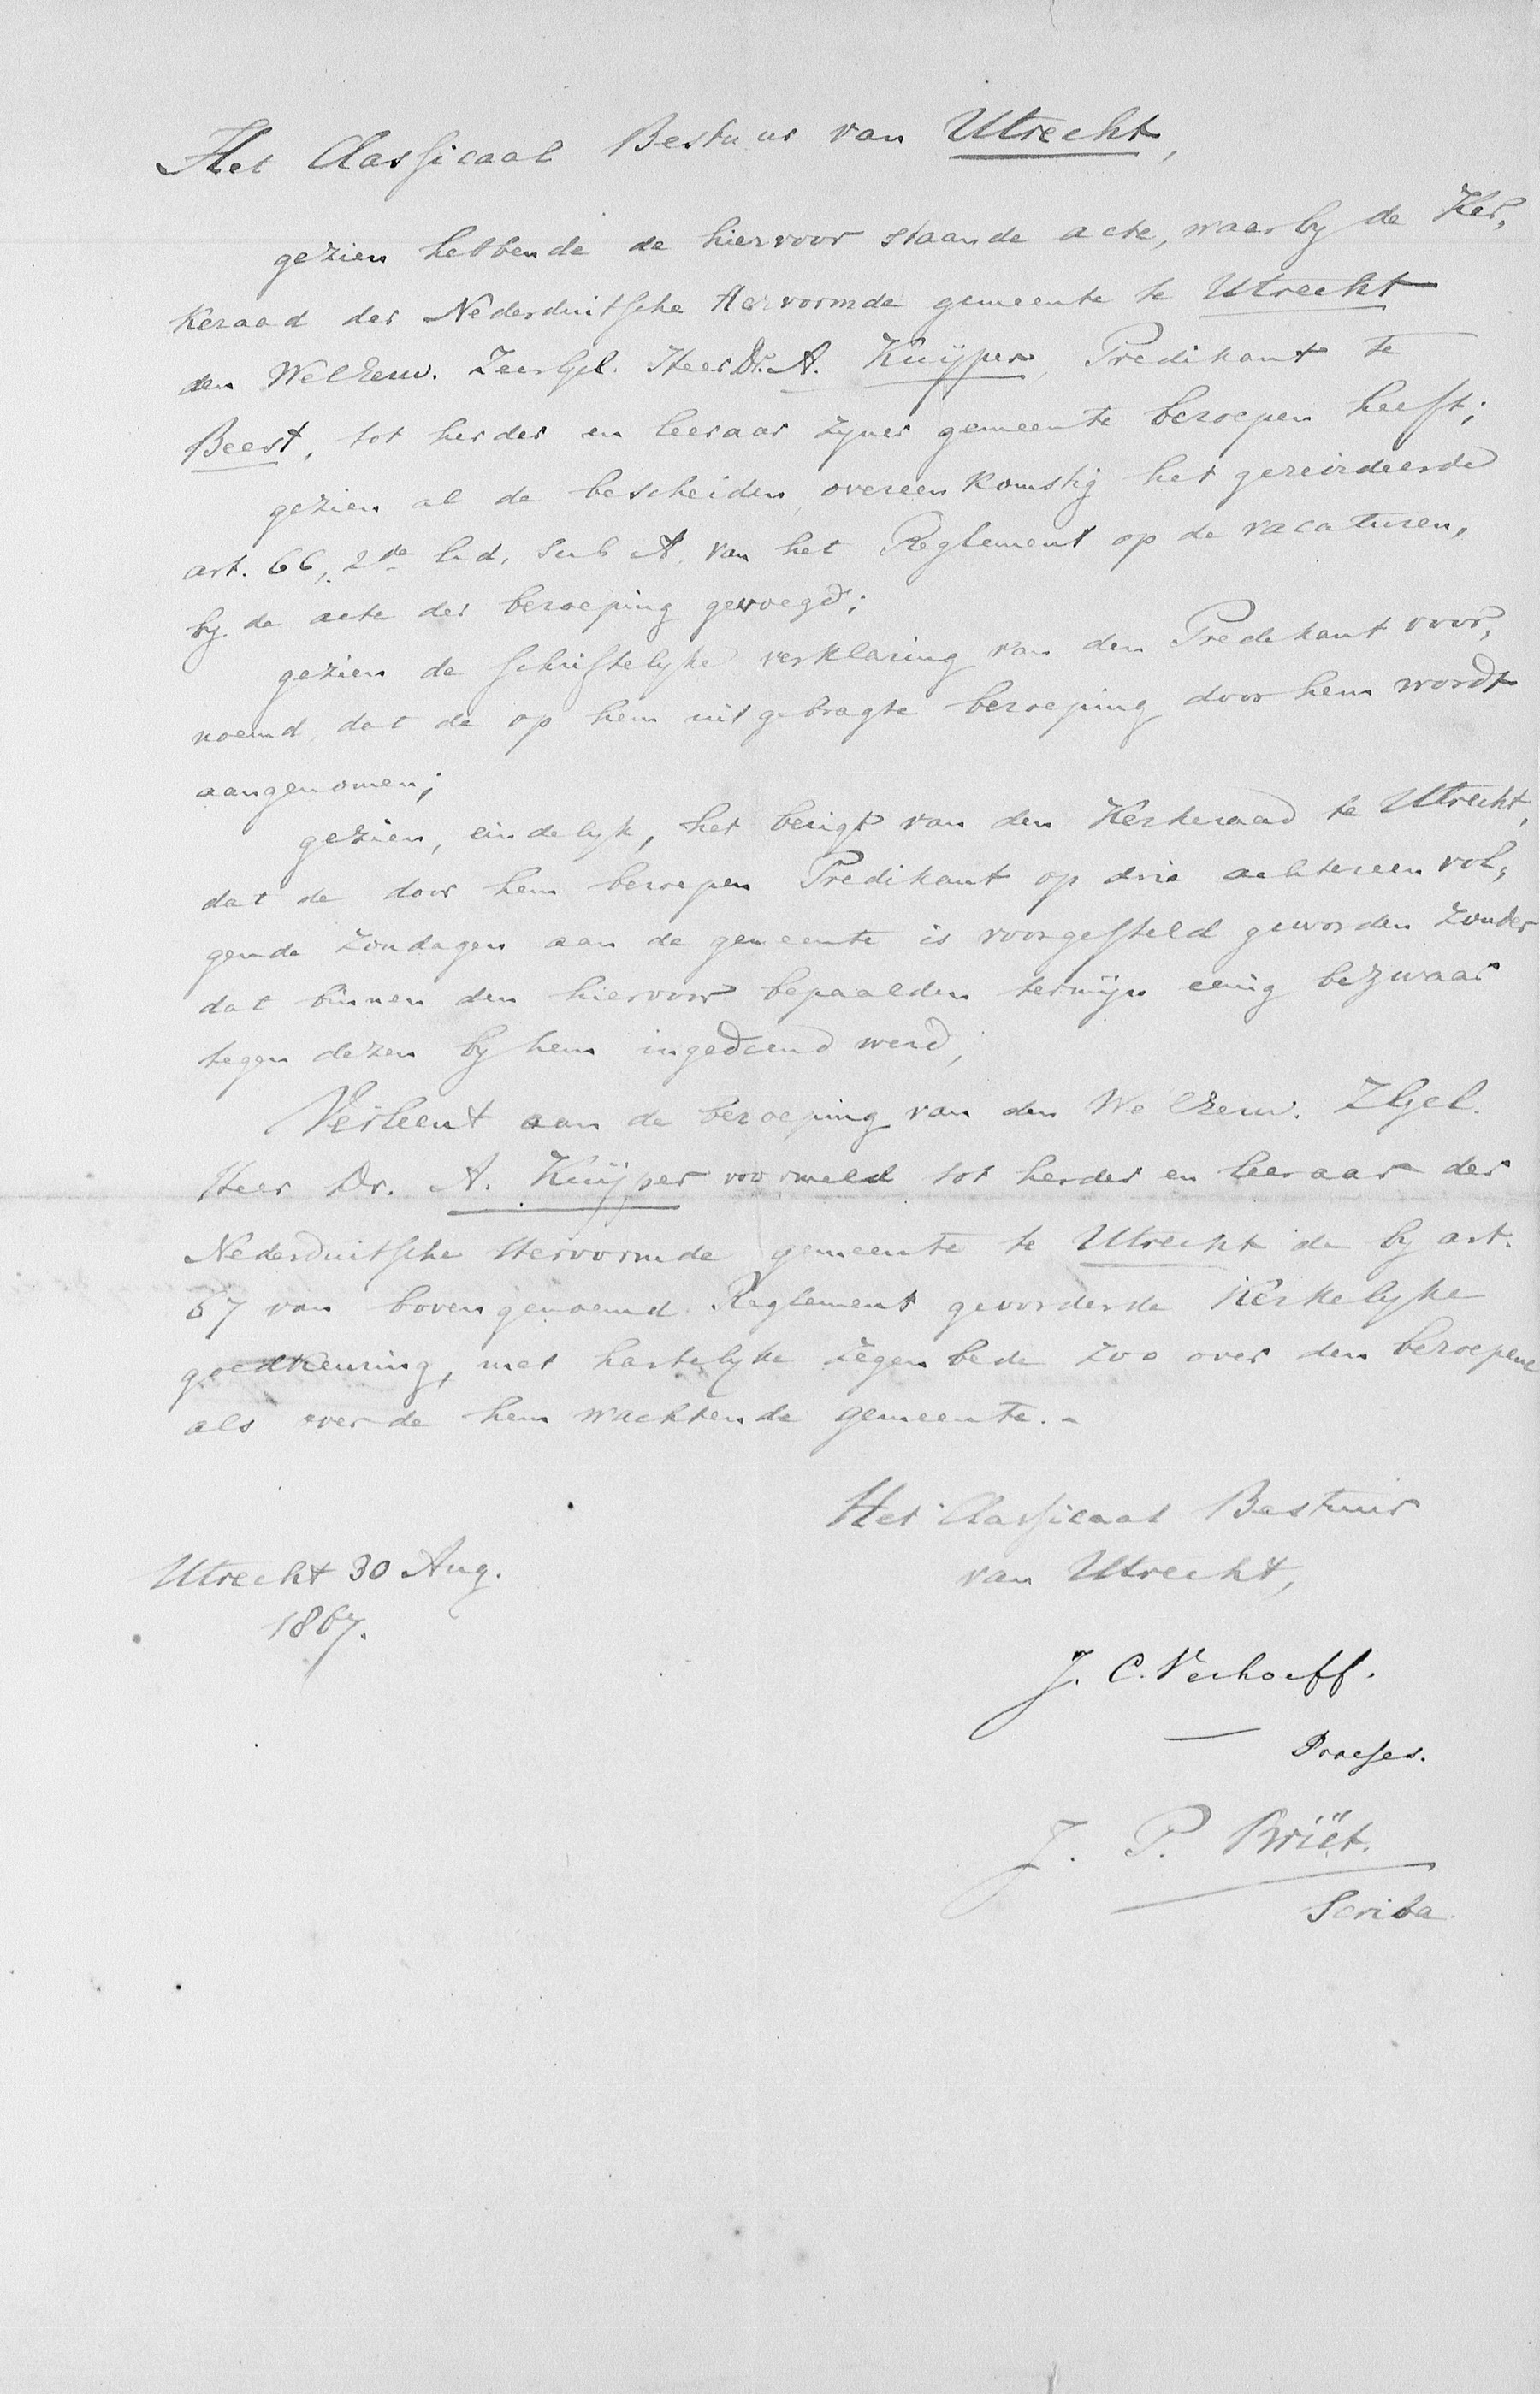 Het Classicaal Bestuur van Utrecht,
gezien hebbende de hiervoor staande acte, waarby de Ker„
keraad der Nederduitsche Hervormde gemeente te Utrecht
den WelEerw. ZeerGel. Heer Dr. A. Kuÿper, Predikant te
Beest, tot herder en leeraar zyner gemeente beroepen heeft;
gezien al de bescheiden, overeenkomstig het gereïrdeerde
art. 66, 2de lid, sub A, van het Reglement op de vacaturen,
by de acte der beroeping gevoegd;
gezien de schriftelyke verklaring van den Predikant voor„
noemd, dat de op hem uitgebragte beroeping door hem wordt
aangenomen;
gezien, eindelyk, het berigt van den Kerkeraad te Utrecht,
dat de door hem beroepen Predikant op drie achtereenvol„
gende Zondagen aan de gemeente is voorgesteld geworden zonder
dat binnen den hiervoor bepaalden termijn eenig bezwaar
tegen dezen by hem ingediend werd,
Verleent aan de beroeping van den WelEerw. ZGel.
Heer Dr. A. Kuÿper voormeld tot herder en leeraar der
Nederduitsche Hervormde gemeente te Utrecht de by art.
67 van bovengenoemd Reglement gevorderde Kerkelyke
goedkeuring, met hartelyke zegenbede zoo over den beroepene
als over de hem wachtende gemeente.-
Het Classicaal Bestuur
van Utrecht,
Utrecht 30 Aug.
1867.
J. C. Verhoeff.
Praeses.
J. P. Briët.
Scriba.